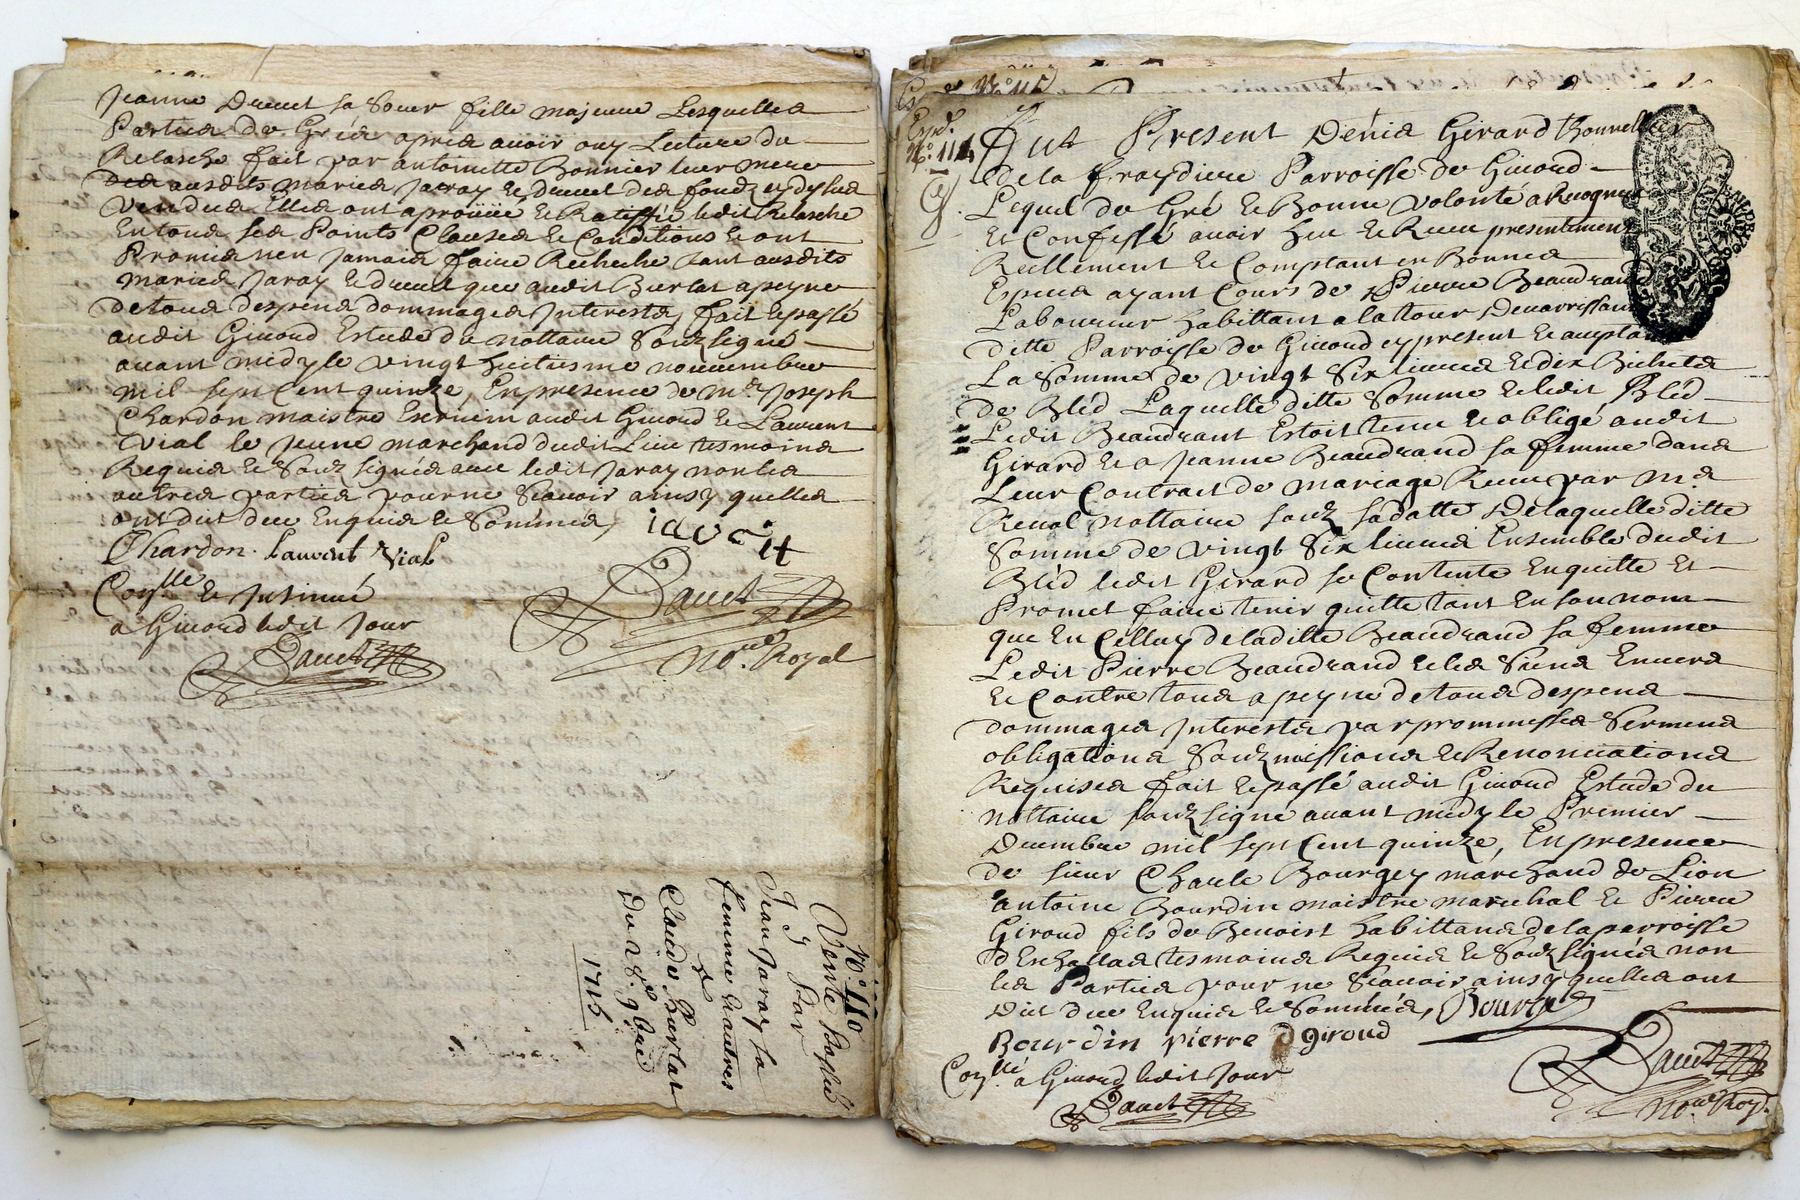 Jeanne Ducret sa Soeur fille majeure Lesquelles
Parties de Gréz apres avoir ouy Lecture du
Relasche fait par antoinette Bonnier leur mere
ausdits mariez Jaray et Ducret des fondz ey dessus
Vendus Elles ont aprouüé et Ratiffié ledit Relasche
En tous ses Points Clauses et Conditions et ont
Promis nen Jamais faire Recherche tant ausdits
mariez Jaray et ducret que audit Burlat a peyne
de tous despens dommages Interests, fait et passé
audit Givord Estude du nottaire Souzsigné
avant midy le vingt huitiesme novembre
mil sept Cent quinze, En presence de mr. Joseph
Chardon maistre Escrivain audit Givord et Laurent
Vial le Jeune marchand dudit Lieu tesmoins
Requis et Souzsignés avec ledit Jaray non les
autres parties pour ne Scavoir ainsy quelles
ont dit de ce Enquis et Sommés,
Chardon. Laurent Vial
Conlle et Insinué
a Givord ledit Jour
No.re Royal
N° 110
Vente passée
par
Jean Jaray sa
femme & autres
a
Claude Burlat
Du 28e 9bre
1715
Expd.
N°. 111
Fut Present Denis Girard Gonnellier
de la fraydiere Parroisse de Givord
Lequel de Gré et Bonne volonté a Recognu
Et Confessé avoir heu et Receu presentement
Reellement et Comptant en Bonnes
Especes ayant Cours de Pierre Beaudrand
Laboureur habittant a la tour
ditte Parroisse de Givord ey present et acceptant
La Somme de vingt Six livres et dix Bichets
de Bléd Laquelle ditte Somme et ledit Bléd
Ledit Beaudrant Estoit tenu et obligé audit
Girard et a Jeanne Beaudrand sa femme dans
Leur Contract de mariage Receu par me
Renol nottaire souz sa datte De laquelle ditte
Somme de vingt Six livres Ensemble dudit
Bléd ledit Girard se Contente En quitte Et
Promet faire tenir quitte tant En son nom
que En Celluy de laditte Beaudrand sa femme
Ledit Pierre Beaudrand et les Siens Envers
et Contre tous a peyne de tous despens
dommages Interests par prommesses Sermens
obligations Souzmissions et Renonciations
Requises fait et passé audit Givord Estude du
nottaire souzsigné avant midy le Premier
Decembre mil sept Cent quinze, En presence
de sieur Charle Bourgey marchand de Lion
antoine Bourdin maistre marechal et Pierre
Giroud fils de Benoist habittans de la parroisse
d'Eschallas tesmoins Requis et Souzsignés non
les Parties pour ne Scavoir ainsy quelles ont
Dit de ce Enquis et Sommés,
Bourdin pierre Giroud
Conllé a Givord ledit Jour
No.re Roy.